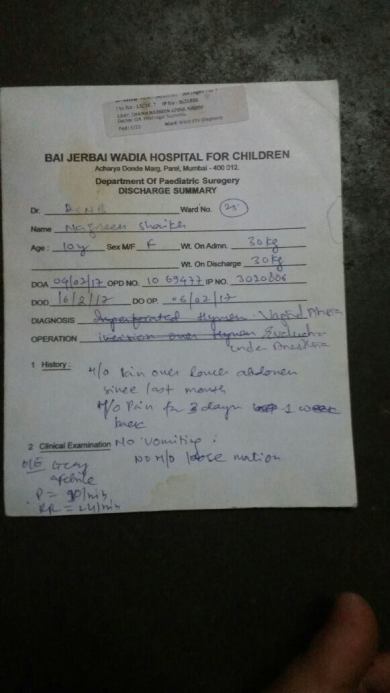 BAI JERBAI WADIA HOSPITAL FOR CHILDREN
Acharya Donde Marg, Parel, Mumbai - 400 012.
Department Of Paediatric Suregery
DISCHARGE SUMMARY
Dr. Ward No. 25
Name Nazreen Shaikh
Age : 10y Sex M/F F Wt. On Admn. 30kg
Wt. On Discharge 30kg
DOA 04/02/17 OPD NO. 10 69477 IP NO. 3020806
DOD 16/2/17 DO OP. 06/02/17
DIAGNOSIS Imperforated Hymen
OPERATION incision over Hymen
under
1 History : H/o Pain over lower abdomen
since last month
H/o Pain for 3 days 1 week
back
2 Clinical Examination No Vomiting.
No H/o loose motion
O/E
afebrile
P = 90/min
RR = 24/min